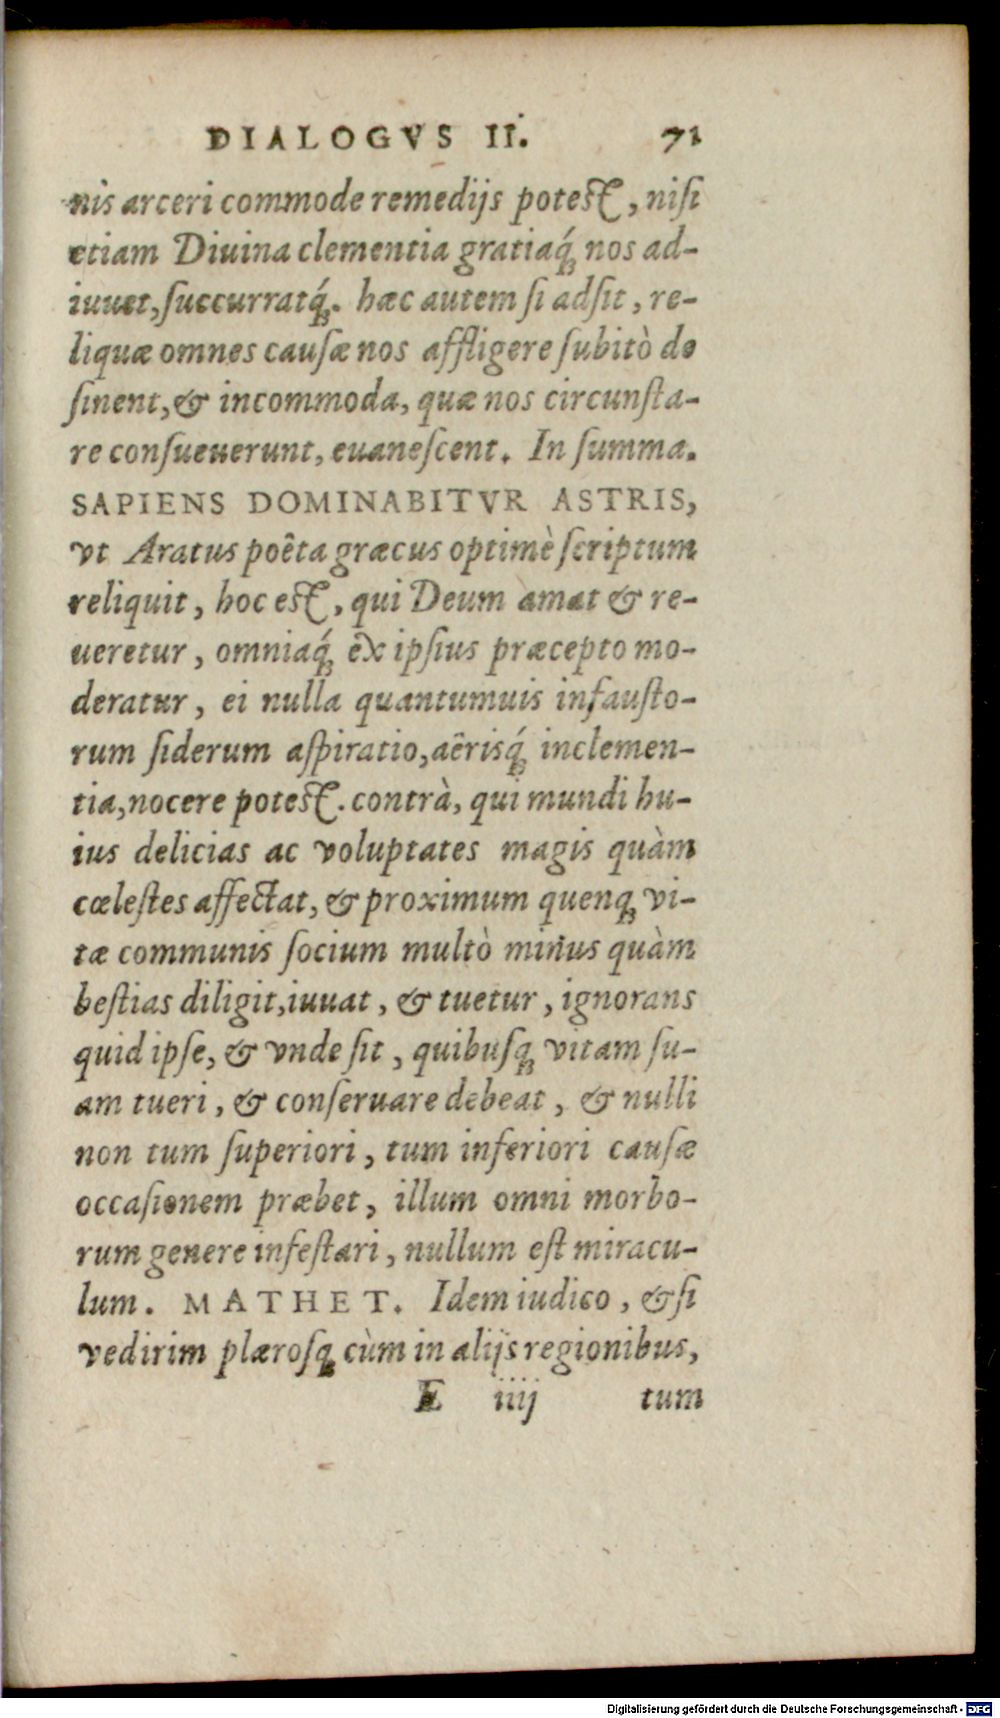 DIALOGVS II. 71
nis arceri commode remedijs potest, nisi
etiam Diuina clementia gratiaq́; nos ad-
iuuet, ſuccurratq́;. hæc autem ſi adſit, re-
liquæ omnes cauſæ nos affligere ſubitò de
ſinent, & incommoda, quæ nos circunſta-
re conſueuerunt, euaneſcent. In ſumma.
SAPIENS DOMINABITVR ASTRIS,
vt Aratus poêta græcus optimè ſcriptum
reliquit, hoc est, qui Deum amat & re-
ueretur, omniaq́; ex ipſius præcepto mo-
deratur, ei nulla quantumuis infauſto-
rum ſiderum aſpiratio, aërisq́; inclemen-
tia, nocere potest. contrà, qui mundi hu-
ius delicias ac voluptates magis quàm
cœleſtes affectat, & proximum quenq; vi-
tæ communis ſocium multò minus quàm
beſtias diligit, iuuat, & tuetur, ignorans
quid ipſe, & vnde ſit, quibuſq; vitam ſu-
am tueri, & conſeruare debeat, & nulli
non tum ſuperiori, tum inferiori cauſæ
occaſionem præbet, illum omni morbo-
rum genere infeſtari, nullum eſt miracu-
lum. MATHET. Idem iudico, & ſi
vedirim plæroſq; cùm in alijs regionibus,
E iiij tum
Digitalisierung gefördert durch die Deutsche Forschungsgemeinschaft - DFG